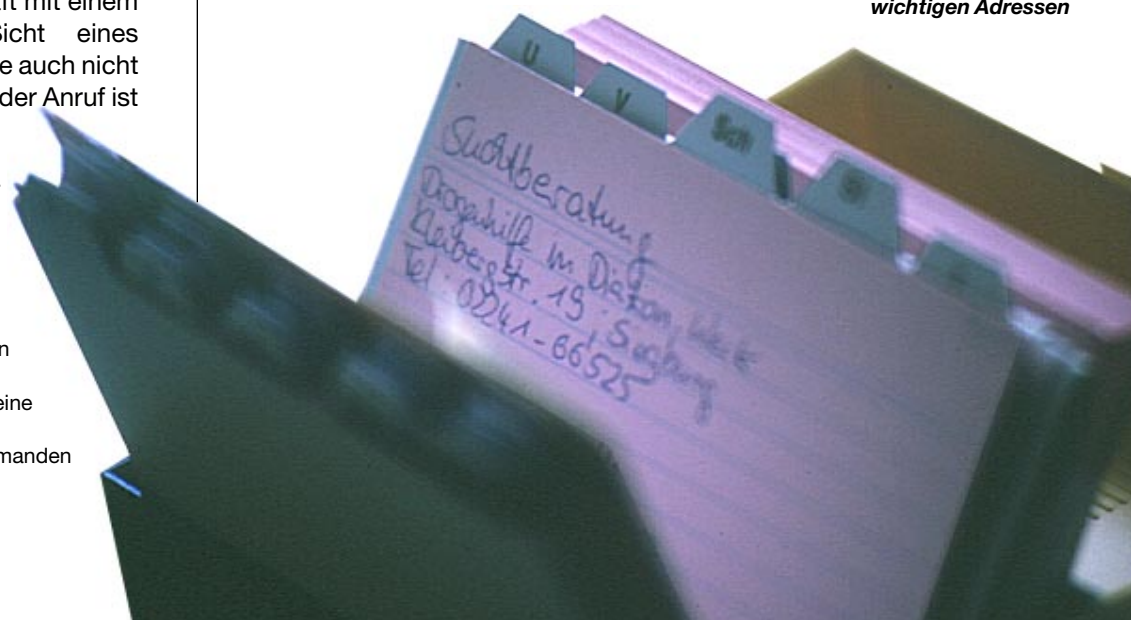 ft mit einem
Sicht eines
e auch nicht
der Anruf ist
wichtigen Adressen
U
V
Sch
Suchtberatung
Drogenhilfe im Diakon. Werk
Kleibergstr. 19, Siegburg
Tel.: 02241-66525
n
eine
manden